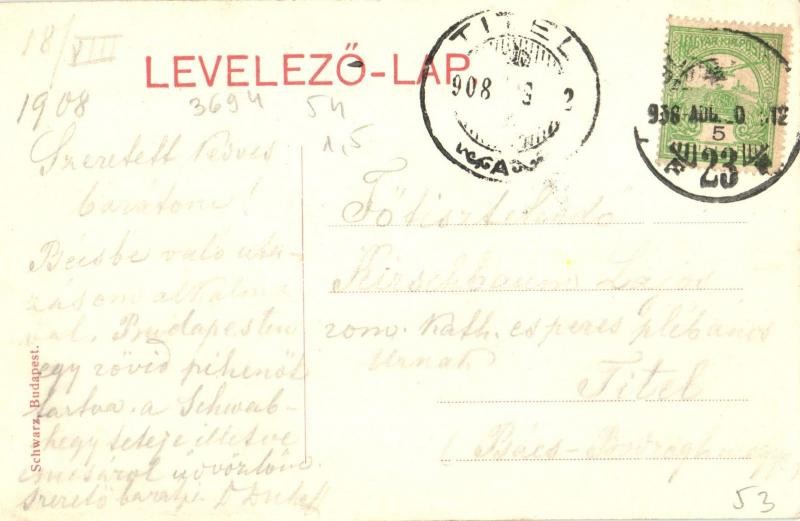 18/VIII
1908
LEVELEZŐ-LAP
3694
54
1,5
TITEL
908
2
MAGYAR KIR. POSTA
5
908 AUG. 12
23
Szeretett kedves
barátom!
Bécsbe való uta-
zásom alkalmá-
val, Budapesten
egy rövid pihenőt
tartva, a Schwab-
hegy teteje illetve
csúcsáról üdvözlöm
szerető barátja D
Főtisztelendő
Kirschbaum Lajos
rom. kath. esperes plébános
Urnak
Titel
Bács-Bodrogh megye
Schwarz, Budapest.
53